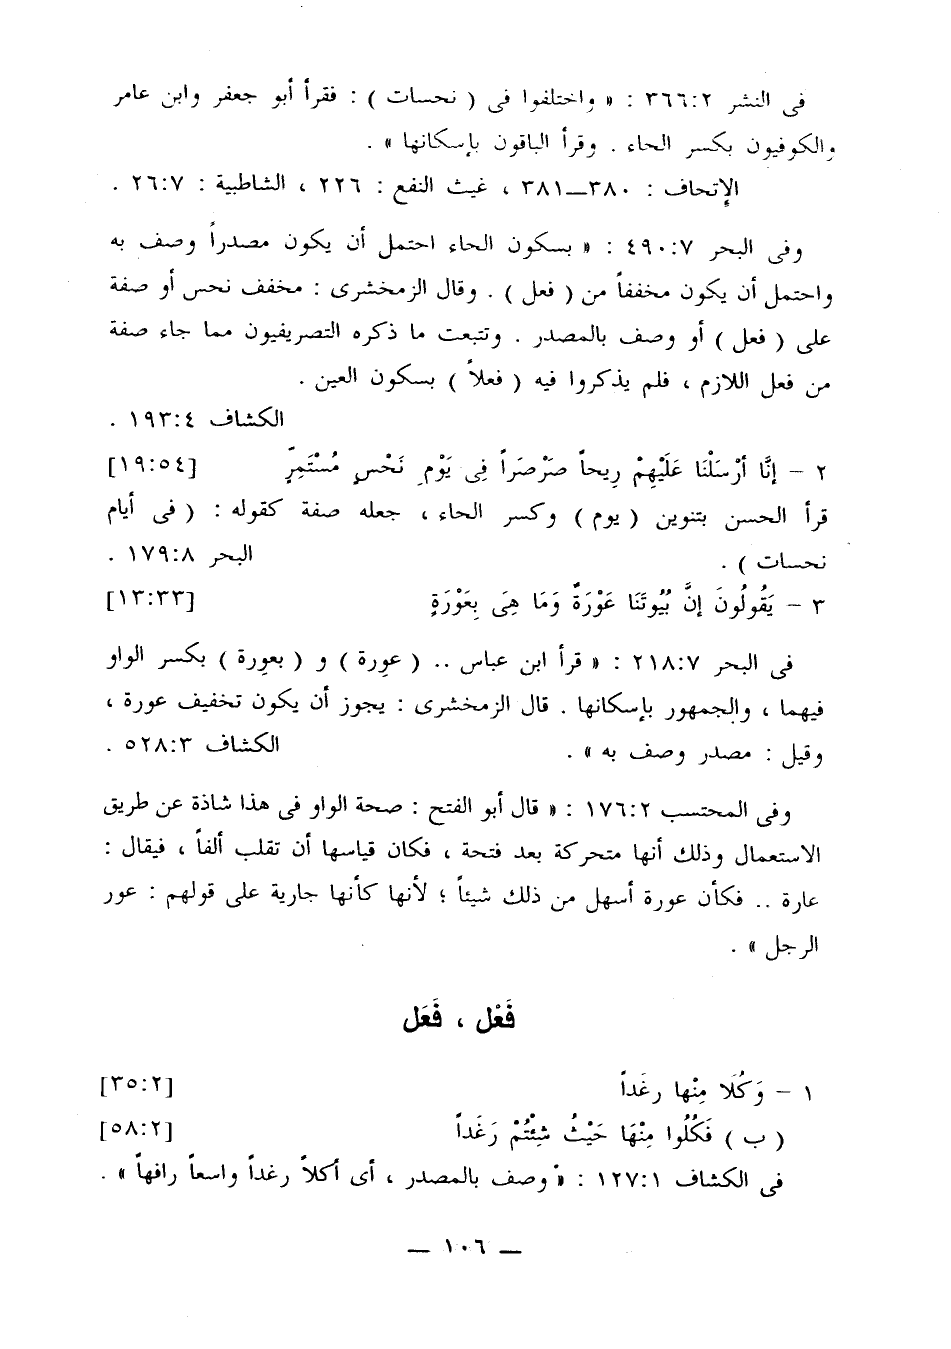 فى النشر ٣٦٦:٢ : « واختلفوا فى ( نحسات ) : فقرأ أبو جعفر وابن عامر
والكوفيون بكسر الحاء . وقرأ الباقون بإسكانها » .
الإتحاف : ٣٨٠ــ٣٨١ ، غيث النفع : ٢٢٦ ، الشاطبية : ٢٦:٧ .
وفى البحر ٤٩٠:٧ : « بسكون الحاء احتمل أن يكون مصدراً وصف به
واحتمل أن يكون مخففاً من ( فعل ) . وقال الزمخشرى : مخفف نحس أو صفة
على ( فعل ) أو وصف بالمصدر . وتتبعت ما ذكره التصريفيون مما جاء صفة
من فعل اللازم ، فلم يذكروا فيه ( فعلاً ) بسكون العين .
الكشاف ١٩٣:٤ .
٢ – إنَّا أرْسَلْنَا عَلَيْهِمْ رِيحاً صَرْصَراً فِى يَوْمِ نَحْسٍ مُسْتَمِرٍّ [١٩:٥٤]
قرأ الحسن بتنوين ( يوم ) وكسر الحاء ، جعله صفة كقوله : ( فى أيام
نحسات ) . البحر ١٧٩:٨ .
٣ – يَقُولُونَ إنَّ بُيُوتَنَا عَوْرَةٌ وَمَا هِىَ بِعَوْرَةٍ [١٣:٣٣]
فى البحر ٢١٨:٧ : « قرأ ابن عباس .. ( عوِرة ) و ( بعوِرة ) بكسر الواو
فيهما ، والجمهور بإسكانها . قال الزمخشرى : يجوز أن يكون تخفيف عورة ،
وقيل : مصدر وصف به » . الكشاف ٥٢٨:٣ .
وفى المحتسب ١٧٦:٢ : « قال أبو الفتح : صحة الواو فى هذا شاذة عن طريق
الاستعمال وذلك أنها متحركة بعد فتحة ، فكان قياسها أن تقلب ألفاً ، فيقال :
عارة .. فكأن عورة أسهل من ذلك شيئاً ؛ لأنها كأنها جارية على قولهم : عور
الرجل » .
فَعْل ، فَعَل
١ – وَكُلَا مِنْها رغَداً [٣٥:٢]
( ب ) فَكُلُوا مِنْهَا حَيْثُ شِئْتُمْ رَغَداً [٥٨:٢]
فى الكشاف ١٢٧:١ : « وصف بالمصدر ، أى أكلاً رغداً واسعاً رافهاً » .
— ١٠٦ —